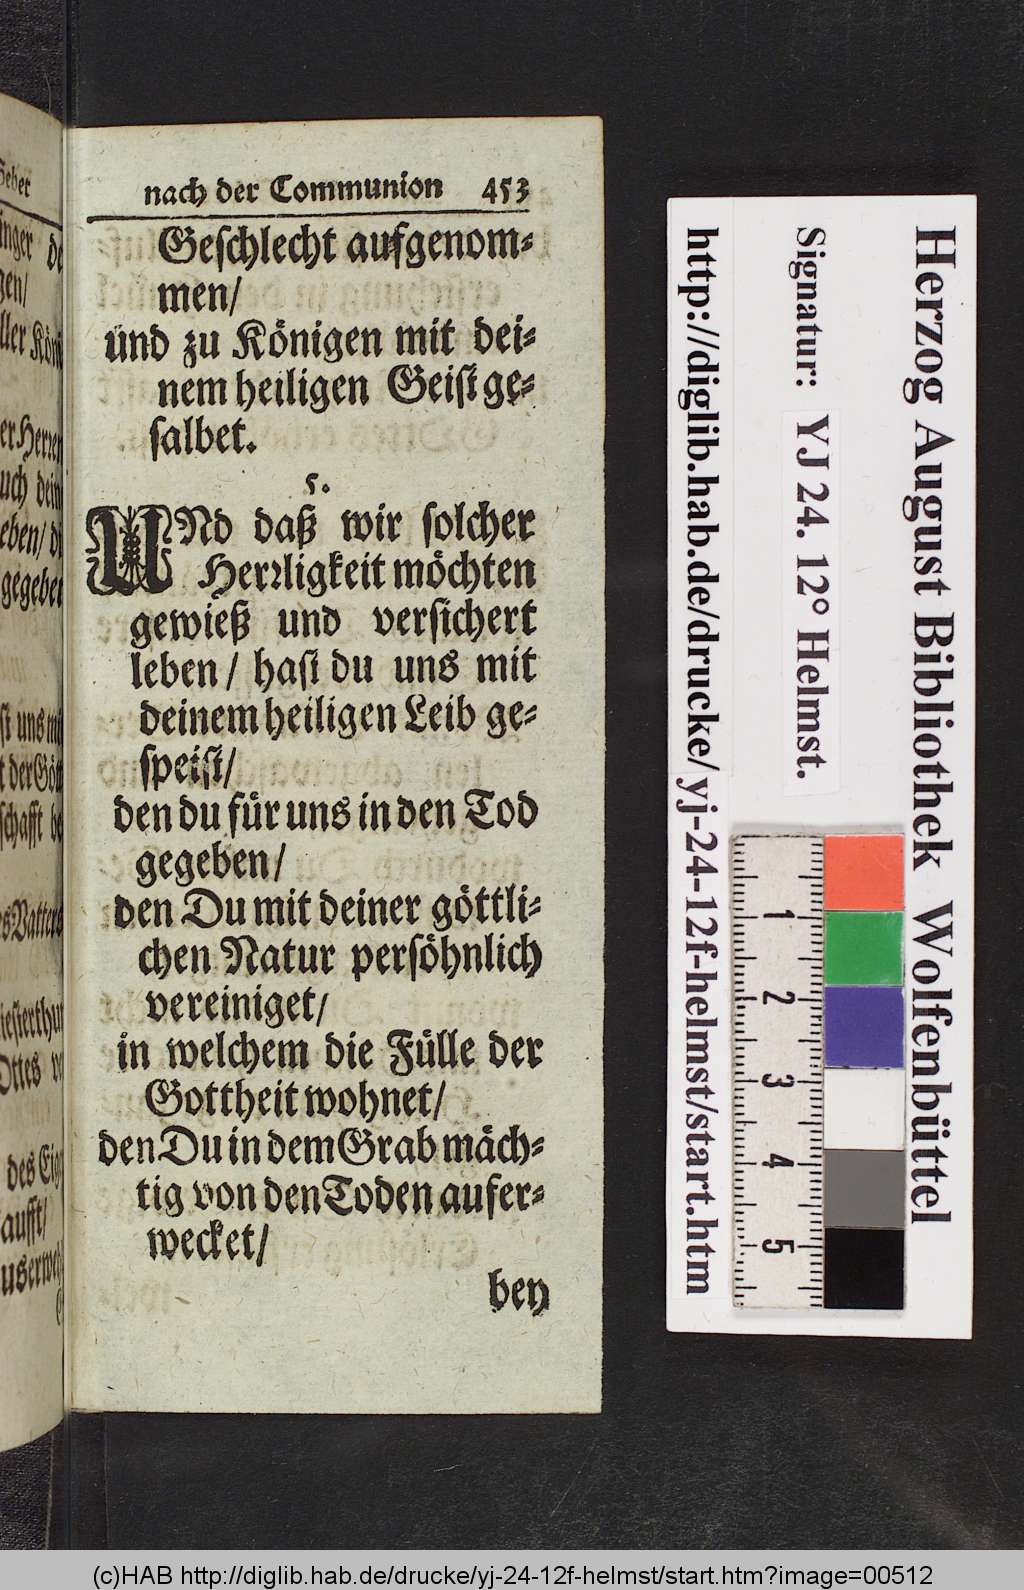 nach der Communion 453
Geschlecht aufgenom⸗
men/
und zu Königen mit dei⸗
nem heiligen Geist ge⸗
salbet.
5.
UNd daß wir solcher
Herrligkeit möchten
gewieß und versichert
leben / hast du uns mit
deinem heiligen Leib ge⸗
speist/
den du für uns in den Tod
gegeben/
den Du mit deiner göttli⸗
chen Natur persöhnlich
vereiniget/
in welchem die Fülle der
Gottheit wohnet/
den Du in dem Grab mäch⸗
tig von den Toden aufer⸗
wecket/
bey
Herzog August Bibliothek Wolfenbüttel
Signatur: YJ 24. 12° Helmst.
http://diglib.hab.de/drucke/yj-24-12f-helmst/start.htm
1
2
3
4
5
(c)HAB http://diglib.hab.de/drucke/yj-24-12f-helmst/start.htm?image=00512